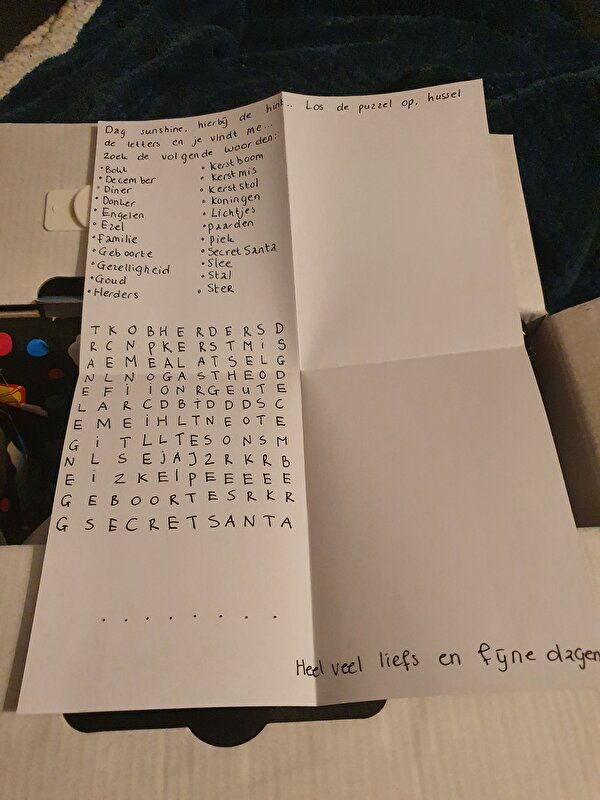 Dag sunshine, hierbij de hint.. Los de puzzel op, hussel
de letters en je vindt me...
Zoek de volgende woorden:
• Bokt
• December
• Diner
• Donker
• Engelen
• Ezel
• Familie
• Geboorte
• Gezelligheid
• Goud
• Herders
• Kerstboom
• Kerstmis
• Kerststol
• Koningen
• Lichtjes
• Paarden
• Piek
• Secret Santa
• Slee
• Stal
• Ster
T K O B H E R D E R S D
R C N P K E R S T M i S
A E M E A L A T S E L G
N L N O G A S T H E O D
E F i i O N R G E U T E
L A R C D B T D D D S C
E M E i H L T N E O T E
G i T L L T E S O N S M
N L S E j A J 2 R K R B
E i Z K E I P E E E E E
G E B O O R T E S R K R
G S E C R E T S A N T A
. . . . . . . .
Heel veel liefs en fijne dagen